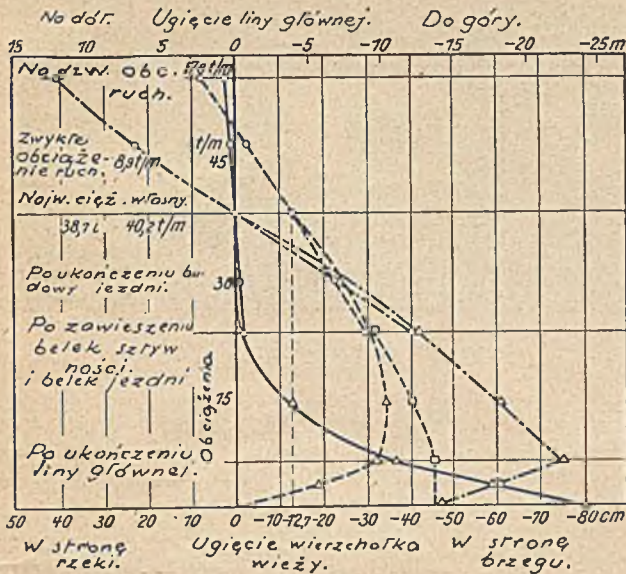 Na dół. Ugięcie liny głównej. Do góry.
15 10 5 0 -5 -10 -15 -20 -25 m
Nadzw. obc. 57,9 t/m
ruch.
Zwykłe
obciąże-
nie ruch. 8,9 t/m
t/m
45
Najw. cięż. własny.
40,2 t/m
Po ukończeniu bu-
dowy jezdni.
30
Po zawieszeniu
belek sztyw
ności.
i belek jezdni
15
Obciążenia
Po ukończeniu
liny głównej.
50 40 30 20 10 0 -10 -12,7 -20 -30 -40 -50 -60 -70 -80 cm
W stronę Ugięcie wierzchołka W stronę
rzeki. wieży. brzegu.